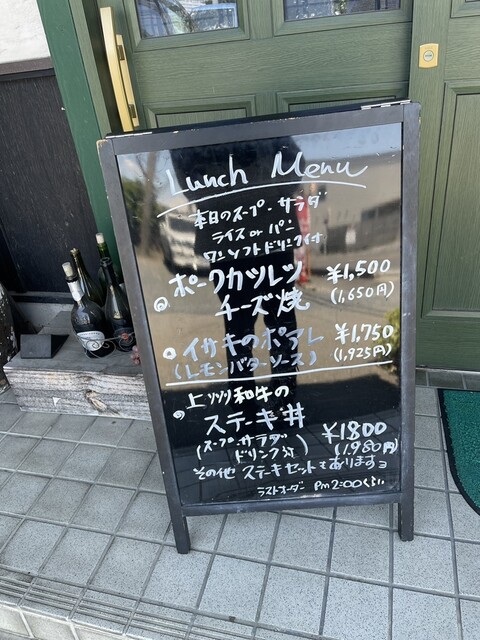 Lunch Menu
本日のスープ・サラダ
ライス or パン
ワンソフトドリンク付
◎ ポークカツレツ ¥1,500
チーズ焼 (1,650円)
◎ イサキのポアレ ¥1,750
(レモンバターソース) (1,925円)
◎ 上州和牛の
ステーキ丼 ¥1800
(スープ・サラダ (1,980円)
ドリンク付)
その他 ステーキセットもあります
ラストオーダー PM 2:00くらい